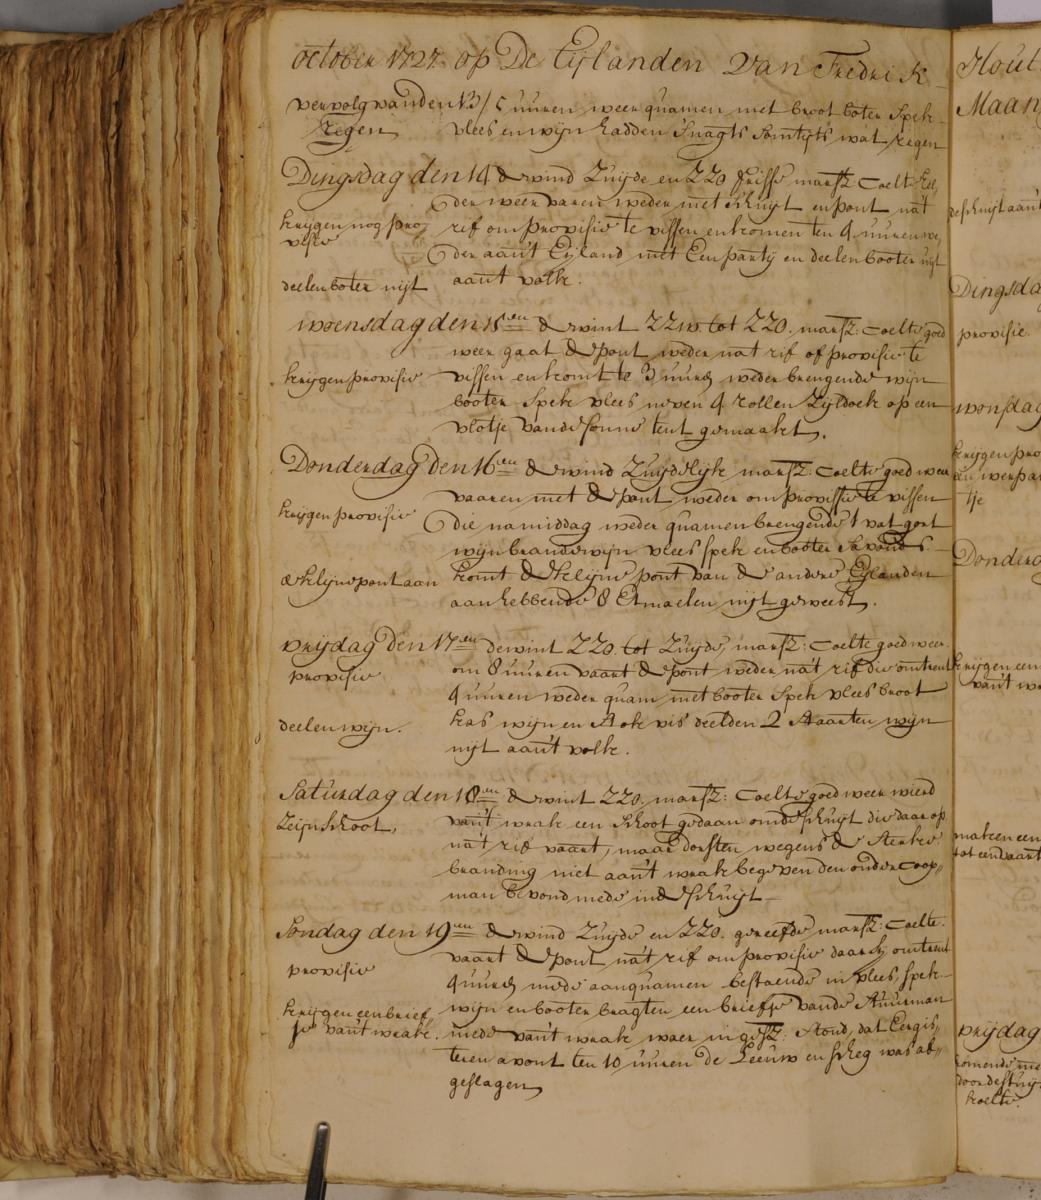 october 1727 op De Eijlanden Van Fredrik
Hout
Maan
vervolg van den 13 / 5 uuren weer quamen met broot boter Spek
regen vlees en wijn hadden Snagts Somtijts wat regen
Dingsdag den 14 de wind Zuijde en ZZO frisse marsz Coelte hel
der weer varen weder met schuijt en pont nat
krijgen nog pro rif om provisie te vissen en komen ten 4 uuren we
visie der aan't Eijland met Een partij en deelen booter uijt
deelen boter uijt aan't volk.
woensdag den 15en de wint ZZW. tot ZZO. marsz: Coelte goed
weer gaat de pont weder nat rif of provisie te
krijgen provisie vissen en komt te 3 uuren weder brengende wijn
booter Spek vlees neven 4 rollen Zijldoek op een
vlotje van de Sonne tent gemaakt.
Donderdag den 16en de wind Zuijdelijk marsz: Coelte goed weer
vaaren met de pont weder om provissie te vissen
krijgen provisie die namiddag weder quamen brengende 1 vat gort
wijn brandewijn vlees spek en booter savonds
de klijne pont aan komt de klijne pont van de andere Eijlanden
aan hebbende 8 Etmaelen uijt geweest.
vrijdag den 17en de wint ZZO. tot Zuijde, marsz: Coelte goed weer
provisie om 8 uuren vaart de pont weder na't rif die omtrent
4 uuren weder quam met booter Spek vlees broot
deelen wijn. kas wijn en Stok vis deelden 2 Staarten wijn
uijt aan't volk.
Saturdag den 18en de wint ZZO. marsz: Coelte goed weer wierd
Zeijn schoot, van't wrak een Schoot gedaan om de schuijt die daar op
na't rif vaart, maar dorsten wegens de Sterke
branding niet aan't wrak begeven den onder Coop
man bevond mede in de schuijt
Sondag den 19en de wind Zuijde en ZZO. gereefde marsz: Coelte.
vaart de pont na't rif om provisie daar zij omtrent
provisie 4 uuren mede aanquamen bestaende in vlees, spek
krijgen een brief wijn en booter bragten een briefje vande Stuurman
je van't wrak. mede van't wrak waer in gesz: Stond, dat Eergis
teren avont ten 10 uuren de Leeuw en scheg was af
geslagen
de schuijt aan't
Dingsda
provisie.
wonsdag
krijgen pro
een werpan
tje
Donderd
krijgen een
van't w
maken een
tot een vaart
vrijdag
komende me
door de stuij
koelte.